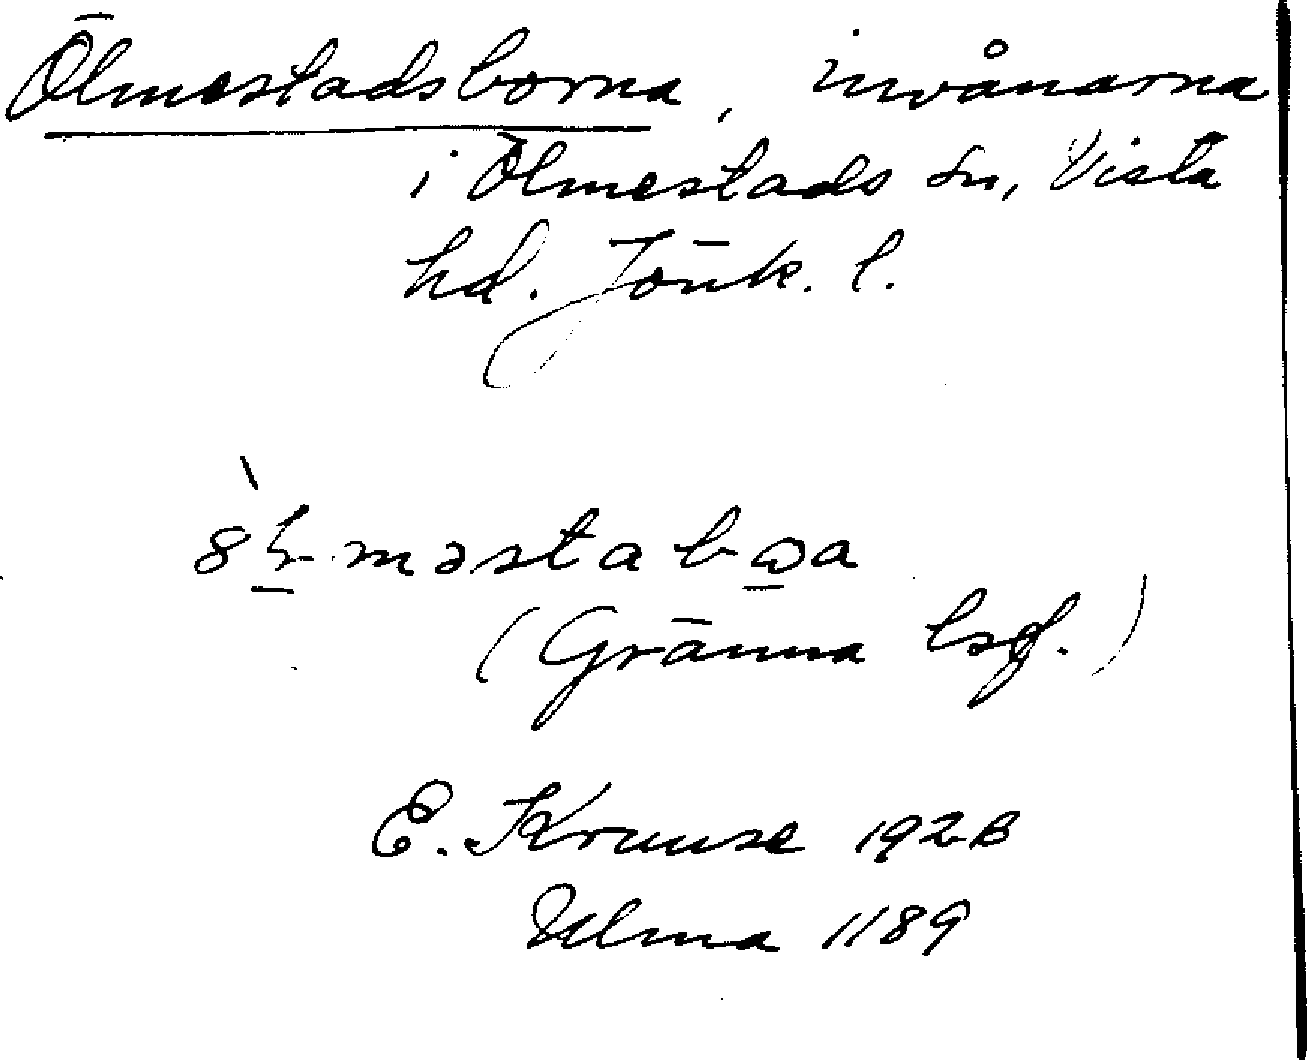 Ölmestadsborna, invånarna
i Ölmestads sn, Vista
hd. Jönk. l.
(Gränna lsf.)
E. Kruuse 1928
Ulma 1189